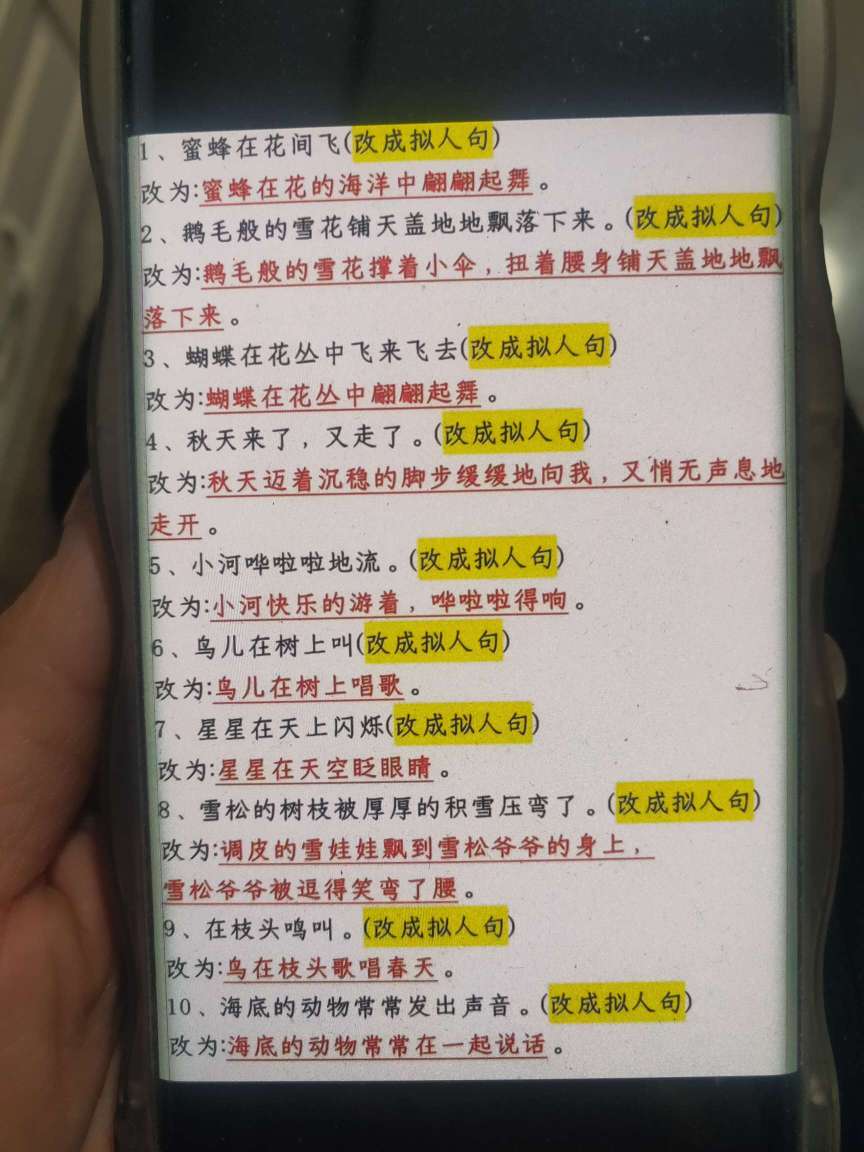 1、蜜蜂在花间飞(改成拟人句)
改为:蜜蜂在花的海洋中翩翩起舞。
2、鹅毛般的雪花铺天盖地地飘落下来。(改成拟人句)
改为:鹅毛般的雪花撑着小伞，扭着腰身铺天盖地地飘
落下来。
3、蝴蝶在花丛中飞来飞去(改成拟人句)
改为:蝴蝶在花丛中翩翩起舞。
4、秋天来了，又走了。(改成拟人句)
改为:秋天迈着沉稳的脚步缓缓地向我，又悄无声息地
走开。
5、小河哗啦啦地流。(改成拟人句)
改为:小河快乐的游着，哗啦啦得响。
6、鸟儿在树上叫(改成拟人句)
改为:鸟儿在树上唱歌。
7、星星在天上闪烁(改成拟人句)
改为:星星在天空眨眼睛。
8、雪松的树枝被厚厚的积雪压弯了。(改成拟人句)
改为:调皮的雪娃娃飘到雪松爷爷的身上，
雪松爷爷被逗得笑弯了腰。
9、在枝头鸣叫。(改成拟人句)
改为:鸟在枝头歌唱春天。
10、海底的动物常常发出声音。(改成拟人句)
改为:海底的动物常常在一起说话。